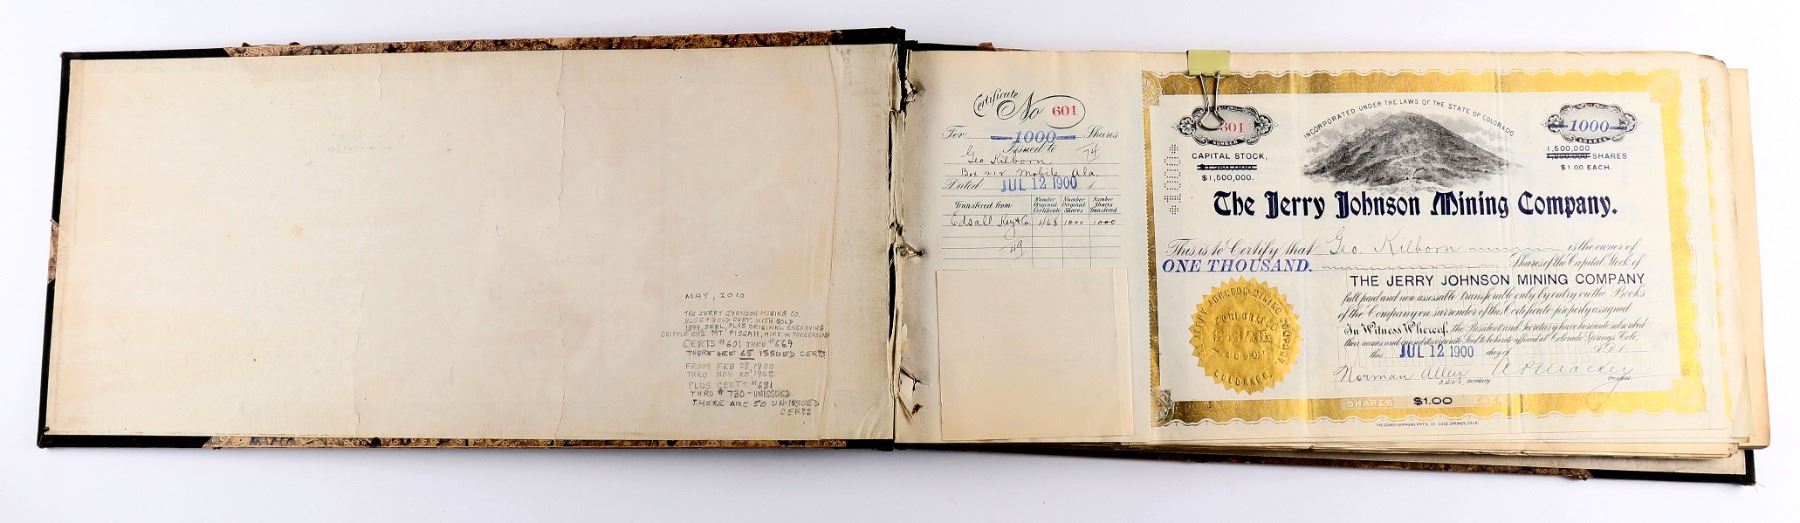 MAY, 2010
THE JERRY JOHNSON MINING CO.
1899 SEAL, PLUS ORIGINAL ENGRAVING
MT. PISGAH, MINE IN FOREGROUND
CERTS #601 THRU #669
THERE ARE 65 ISSUED CERTS
FROM FEB 28, 1900
THRU NOV 20 1902
PLUS CERTS #681
THRU #730 - UNISSUED
THERE ARE 50 UN-ISSUED
CERTS
Certificate No 601
For 1000 Shares
Issued to
Geo Kilborn 74
Box 212 Mobile Ala.
Dated JUL 12 1900
Transferred from Number Original Certificate Number Original Shares Number Shares Transferred
Edsall Key & Co 468 1000 1000
INCORPORATED UNDER THE LAWS OF THE STATE OF COLORADO
601
NUMBER
1000
SHARES
CAPITAL STOCK,
$1,500,000.
1,500,000
1,250,000 SHARES
$1.00 EACH.
1000
The Jerry Johnson Mining Company.
This is to Certify that Geo. Kilborn is the owner of
ONE THOUSAND. Shares of the Capital Stock of
THE JERRY JOHNSON MINING COMPANY
full paid and non assessable transferable only by entry on the Books
of the Company on surrender of this Certificate properly assigned
In Witness Whereof, the President and Secretary have hereunto subscribed
their names and caused its corporate Seal to be hereto affixed at Colorado Springs Colo.
this JUL 12 1900 day of
Norman Allen Asst. Secretary
THE JERRY JOHNSON MINING COMPANY
SEAL
COLORADO.
SHARES $1.00 EACH